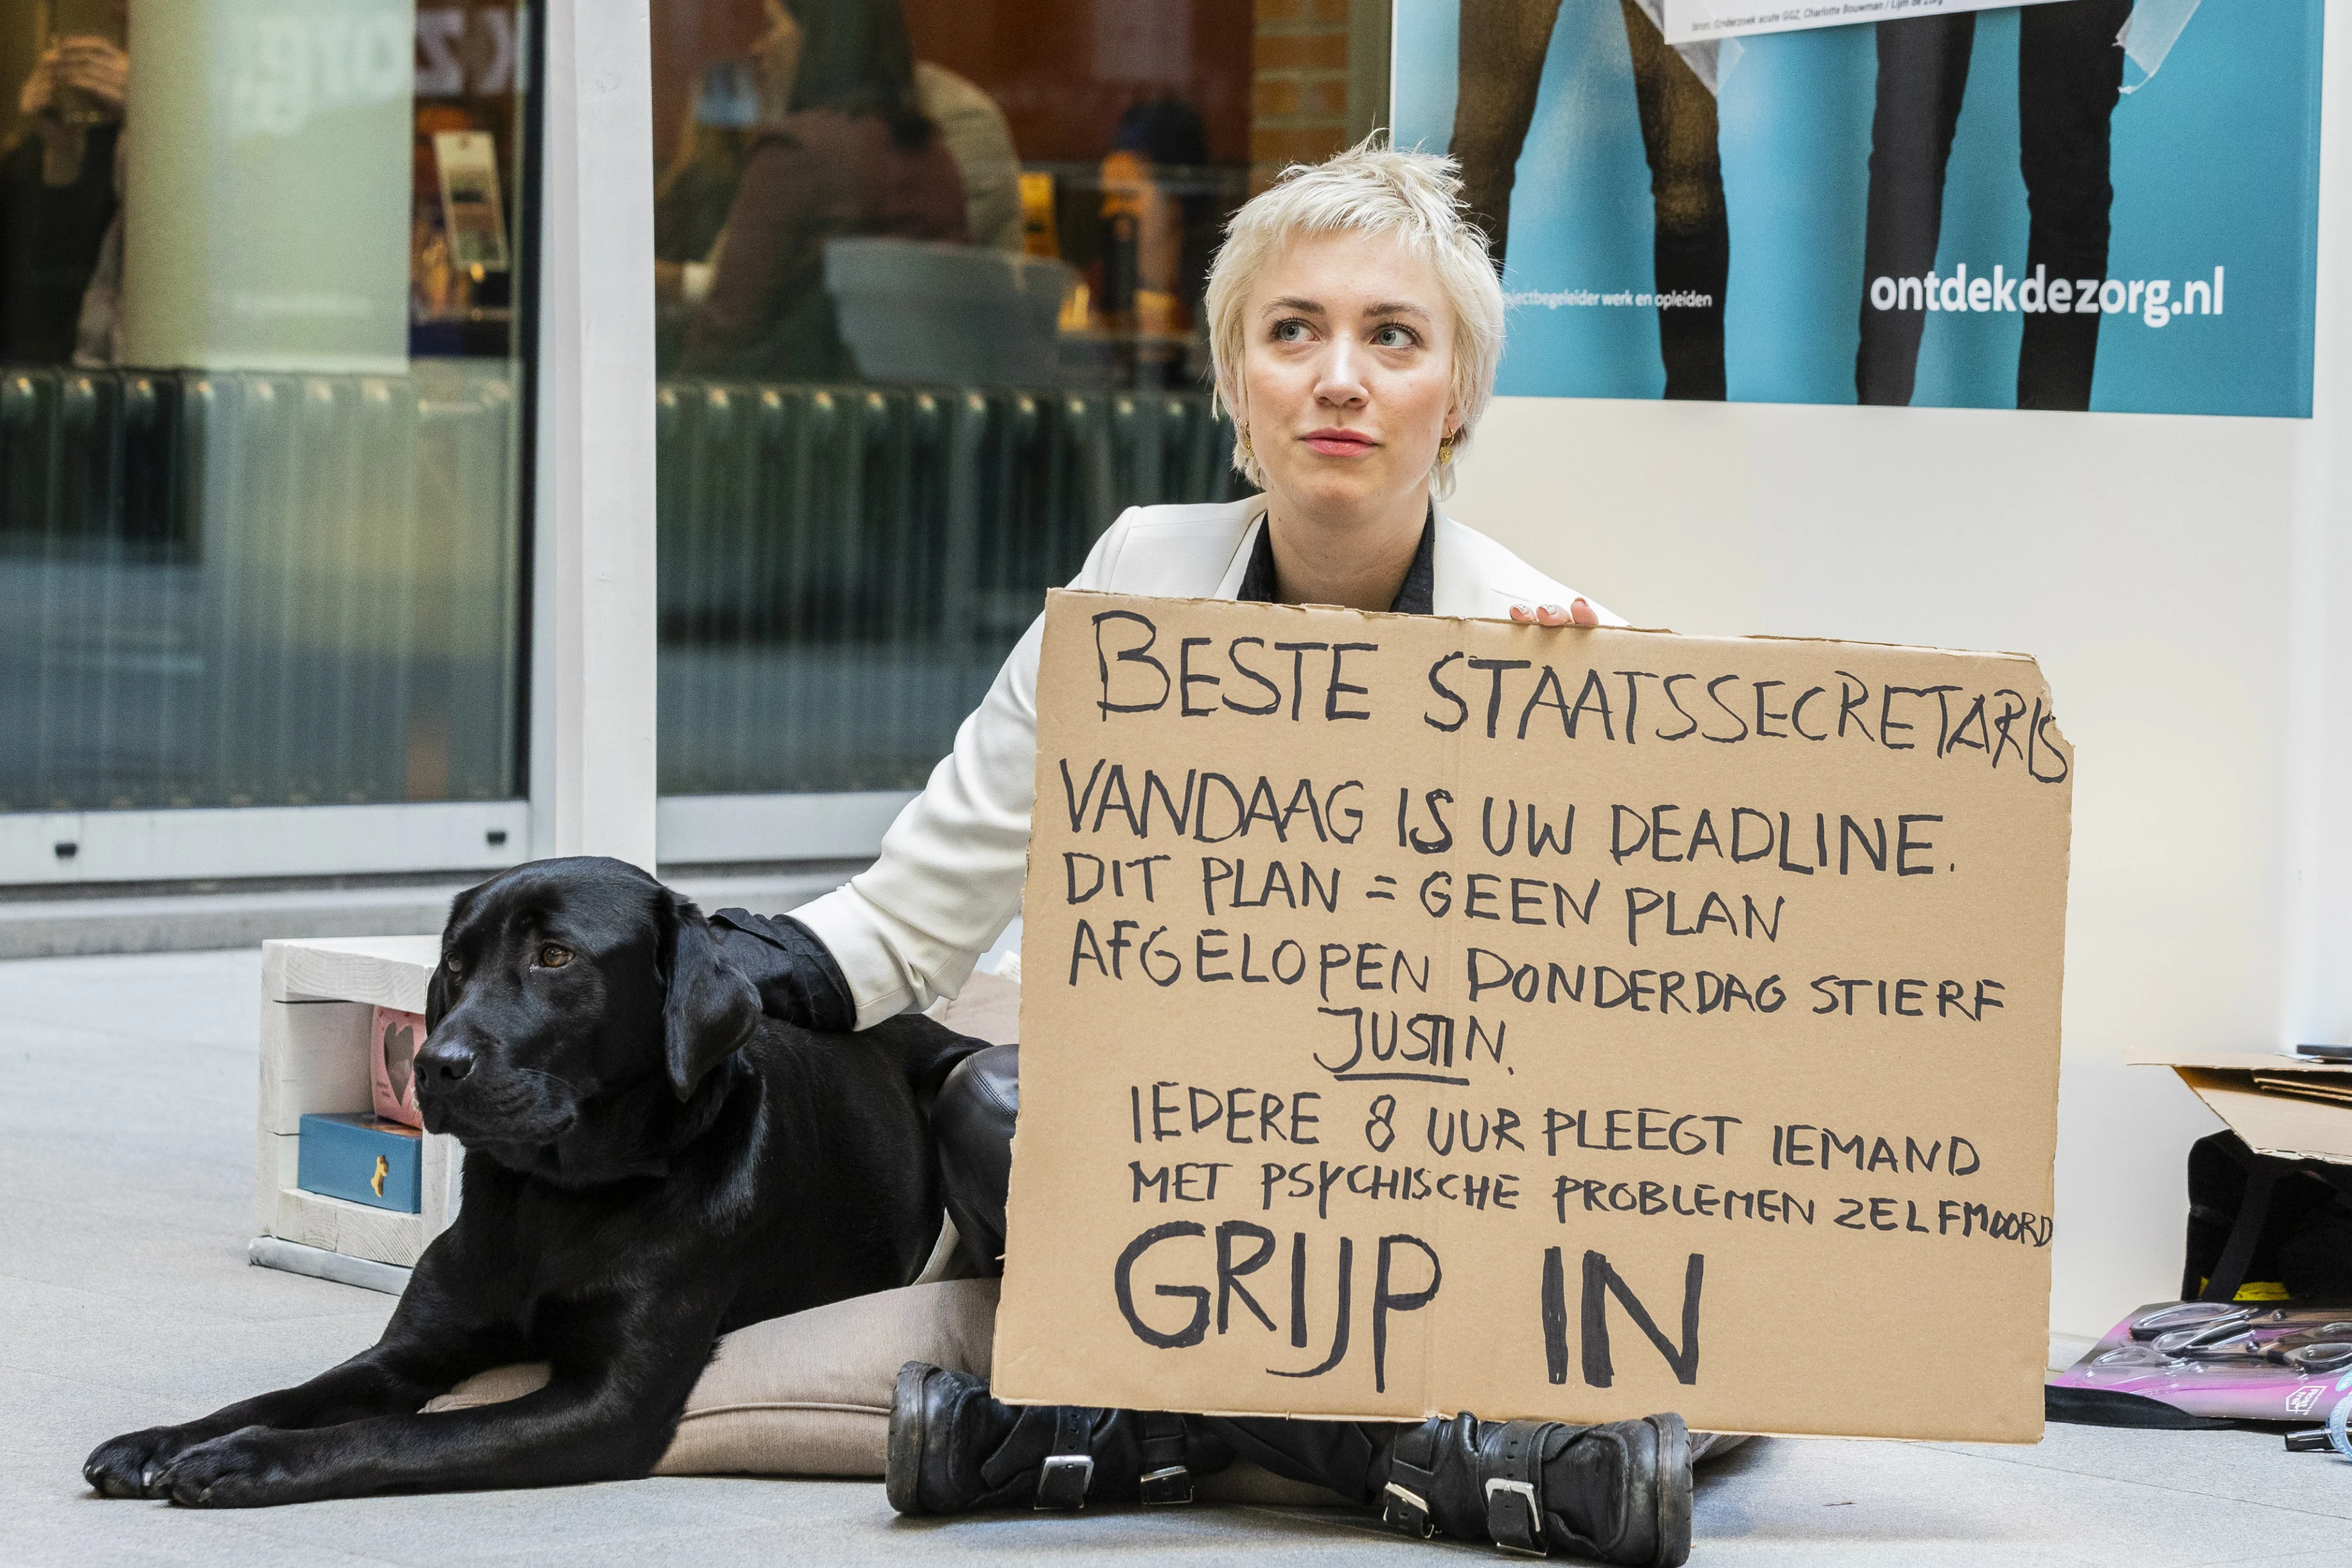 bron: Onderzoek acute GGZ, Charlotte Bouwman / Lijm de Zorg
werk en opleiden
ontdekdezorg.nl
BESTE STAATSSECRETARIS
VANDAAG IS UW DEADLINE.
DIT PLAN = GEEN PLAN
AFGELOPEN DONDERDAG STIERF
JUSTIN.
IEDERE 8 UUR PLEEGT IEMAND
MET PSYCHISCHE PROBLEMEN ZELFMOORD
GRIJP IN